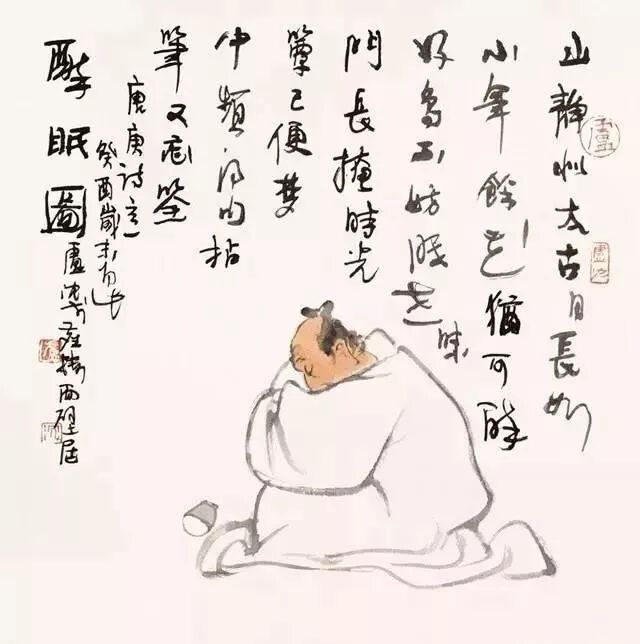 山靜似太古日長如
小年餘花猶可醉
好鳥不妨眠世味
門長掩時光
簟已便夢
中頻得句拈
筆又忘筌
唐庚詩意
癸酉歲末
醉眠圖
盧沉
西壁居